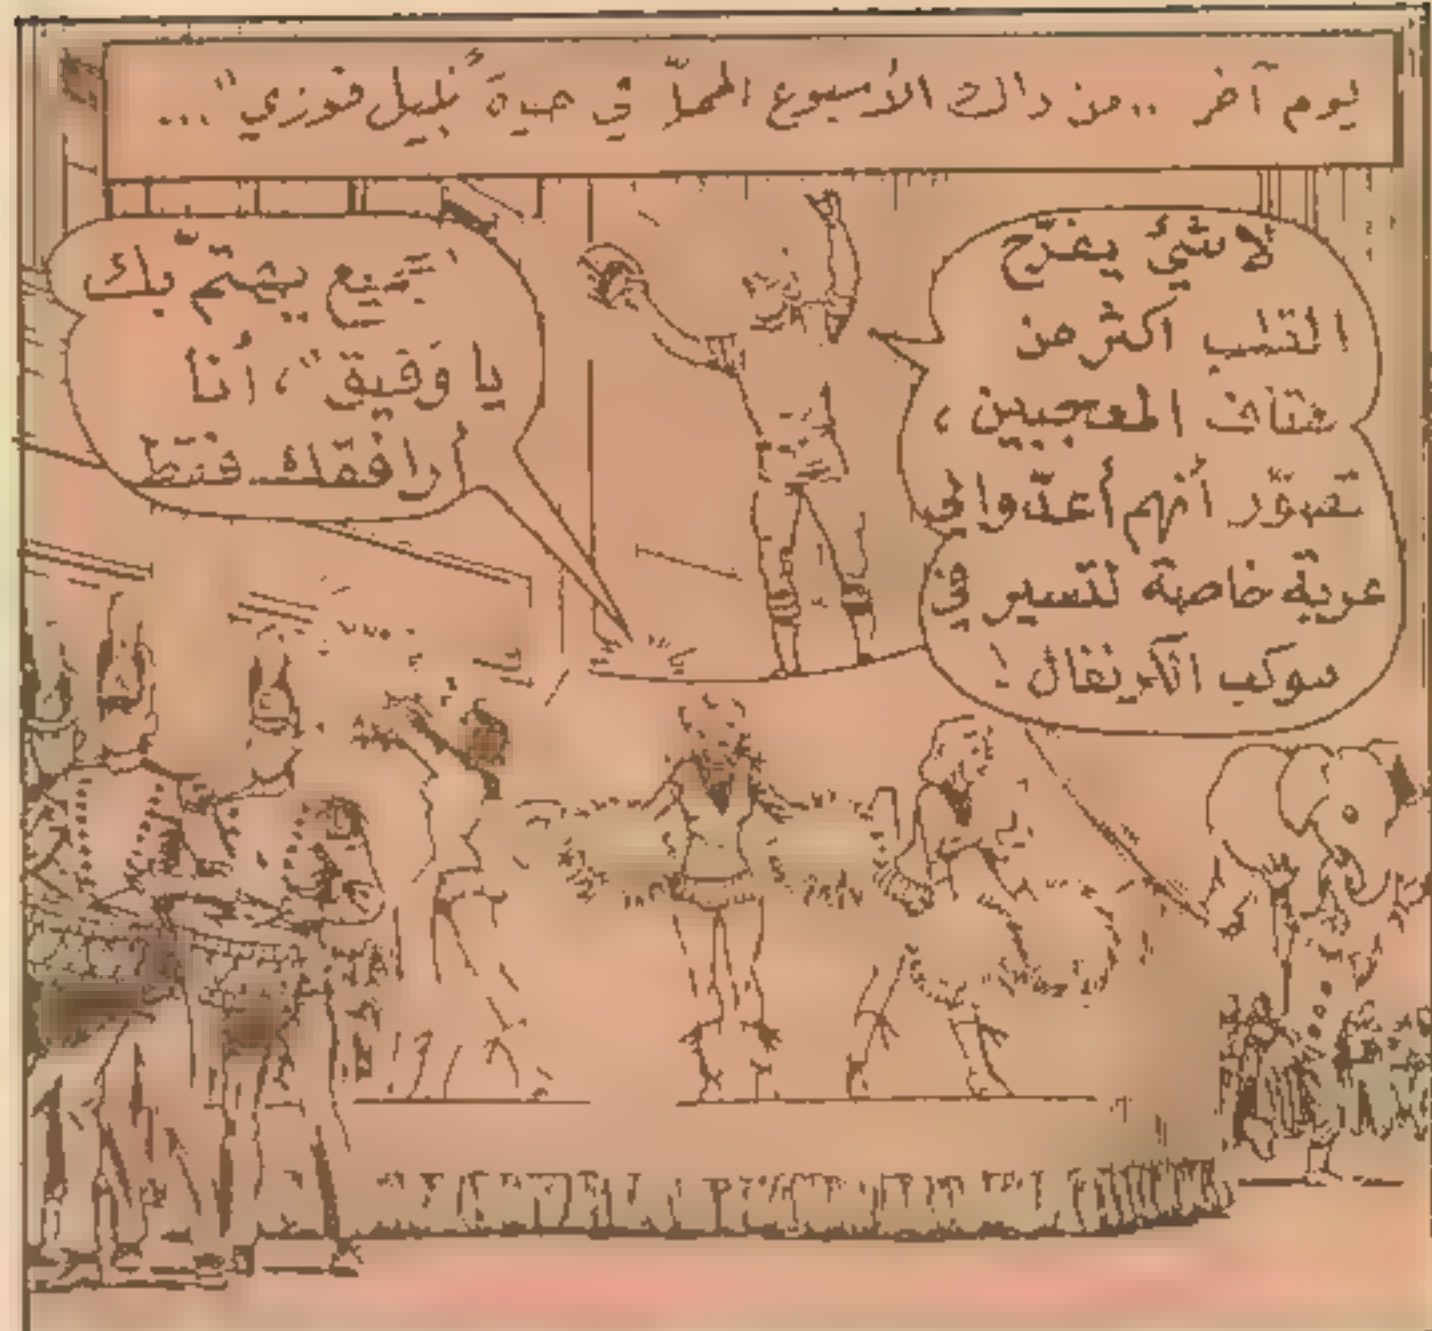 يوم آخر .. من ذاك الأسبوع الممل في حياة "نبيل فوزي" ...
لا شيء يفرّح
القلب أكثر من
هتاف المعجبين ،
تصوّر أنهم أعدّوا لي
عربة خاصة لتسير في
موكب الكرنفال !
الجميع يهتمّ بك
يا "رفيق"، أنا
أرافقك فقط